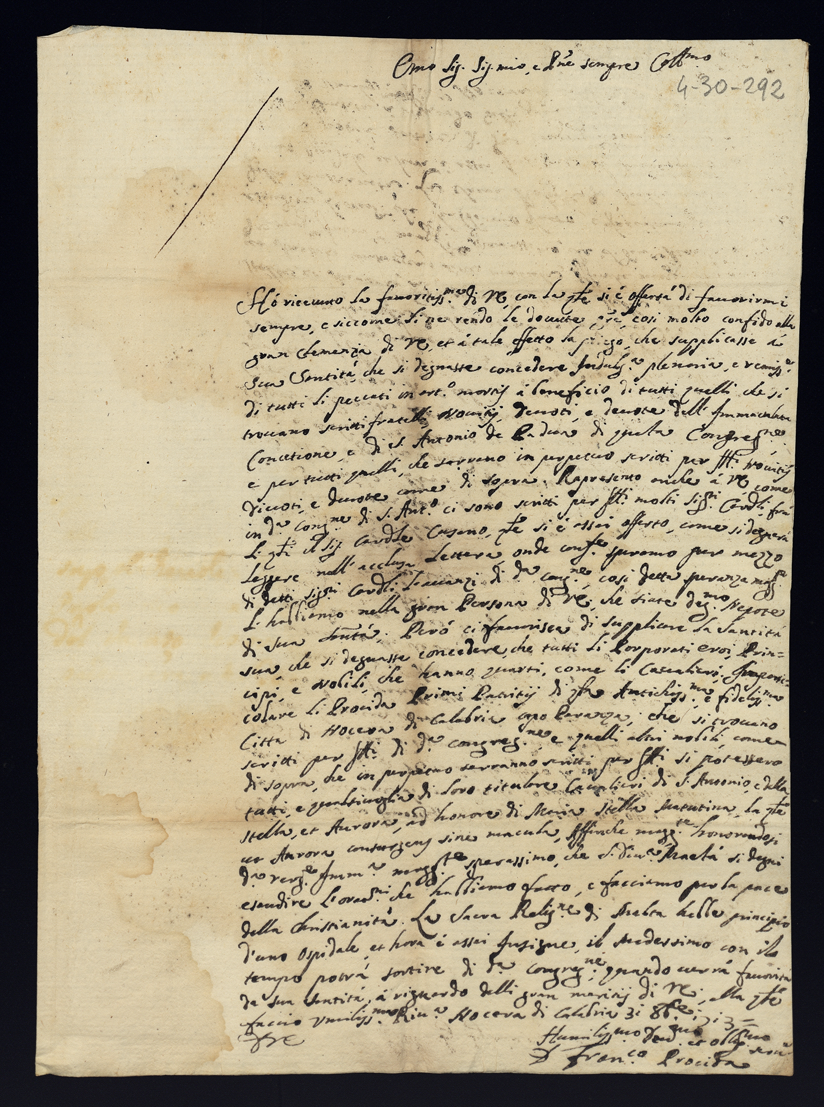 Emo Sig. Sig. mio, e Pne sempre Collmo
4-30-292
Hó riceuuto la fauoritissma di VE, con la qle si é offersá di fauorirmi
sempre, e siccome li ne rendo le douute grē, cosi molto confido alla
gran Clemenza di VE, et á tale effetto la priego, che supplicasse á
Sua Santitá, che si degnasse concedere Indulga plenaria, e remisse
di tutti li peccati in arto mortis á beneficio di tutti quelli, che si
trouano scritti fratelli Nouitij Deuoti, e deuote dell' Immaculata
Concetione, e di S. Antonio de Padua di questa Congregne,
e per tutti quelli, che sarrano in perpetuo scritti per fflli Nouitij
Diuoti, e diuote come di sopra. Rapresento anche á VE come
in da Congne di S. Anto ci sono scritti per fflli molti sigri Cardli frá
li qli il Sig. Cardle Casono, qle si é assai offerto, come si degnerá
leggere nell' acclusa lettera onde speramo per mezzo
di detti sigri Cardli di da Congne, cosi detta speranza magre
l' habbiamo nella gran Persona di VE, che siate degmo Nepote
di sua Santá. Peró ci fauorisca di supplicare la Santitá
sua che si degnasse concedere che tutti li Porporati eroi Prin=
cipi, e Nobili, che hanno quarti, come li Caualieri,
colare li Procida Primi Patritij di qsta Antichissma, e fidelissma
Cittá di Nocera di Calabria che si trouano
scritti per fflli di da Congregne e quelli altri nobili, come
di sopra, che in perpetuo serranno scritti per fflli si potessero
tutti, e qualsiuoglia di loro titulare Caualieri di S. Antonio, e della
Stella, et Aurora, ad honore di Maria Stella matutina, la qle
ut Aurora consurgens sine macula, Affinche magte honorandosi
da Verge Imma sperassimo, che S. Diua Maestá si degni
esaudire l'orasni che habbiamo fatto, e facciamo per la pace
della Christianitá. La Sacra Religne di Malta hebbe principio
d'uno Ospidale, et hora é assai Insigne, il medessimo con il
tempo potrá sortire di da Congregne, quando uerrá fauorita
da sua Santitá, á riguardo delli gran meritij di VE, alla qle
faccio Vmilissma Riua Nocera di Calabria 31 86re
D VE
Humilissmo Deuo et obblo
D Franco Procida